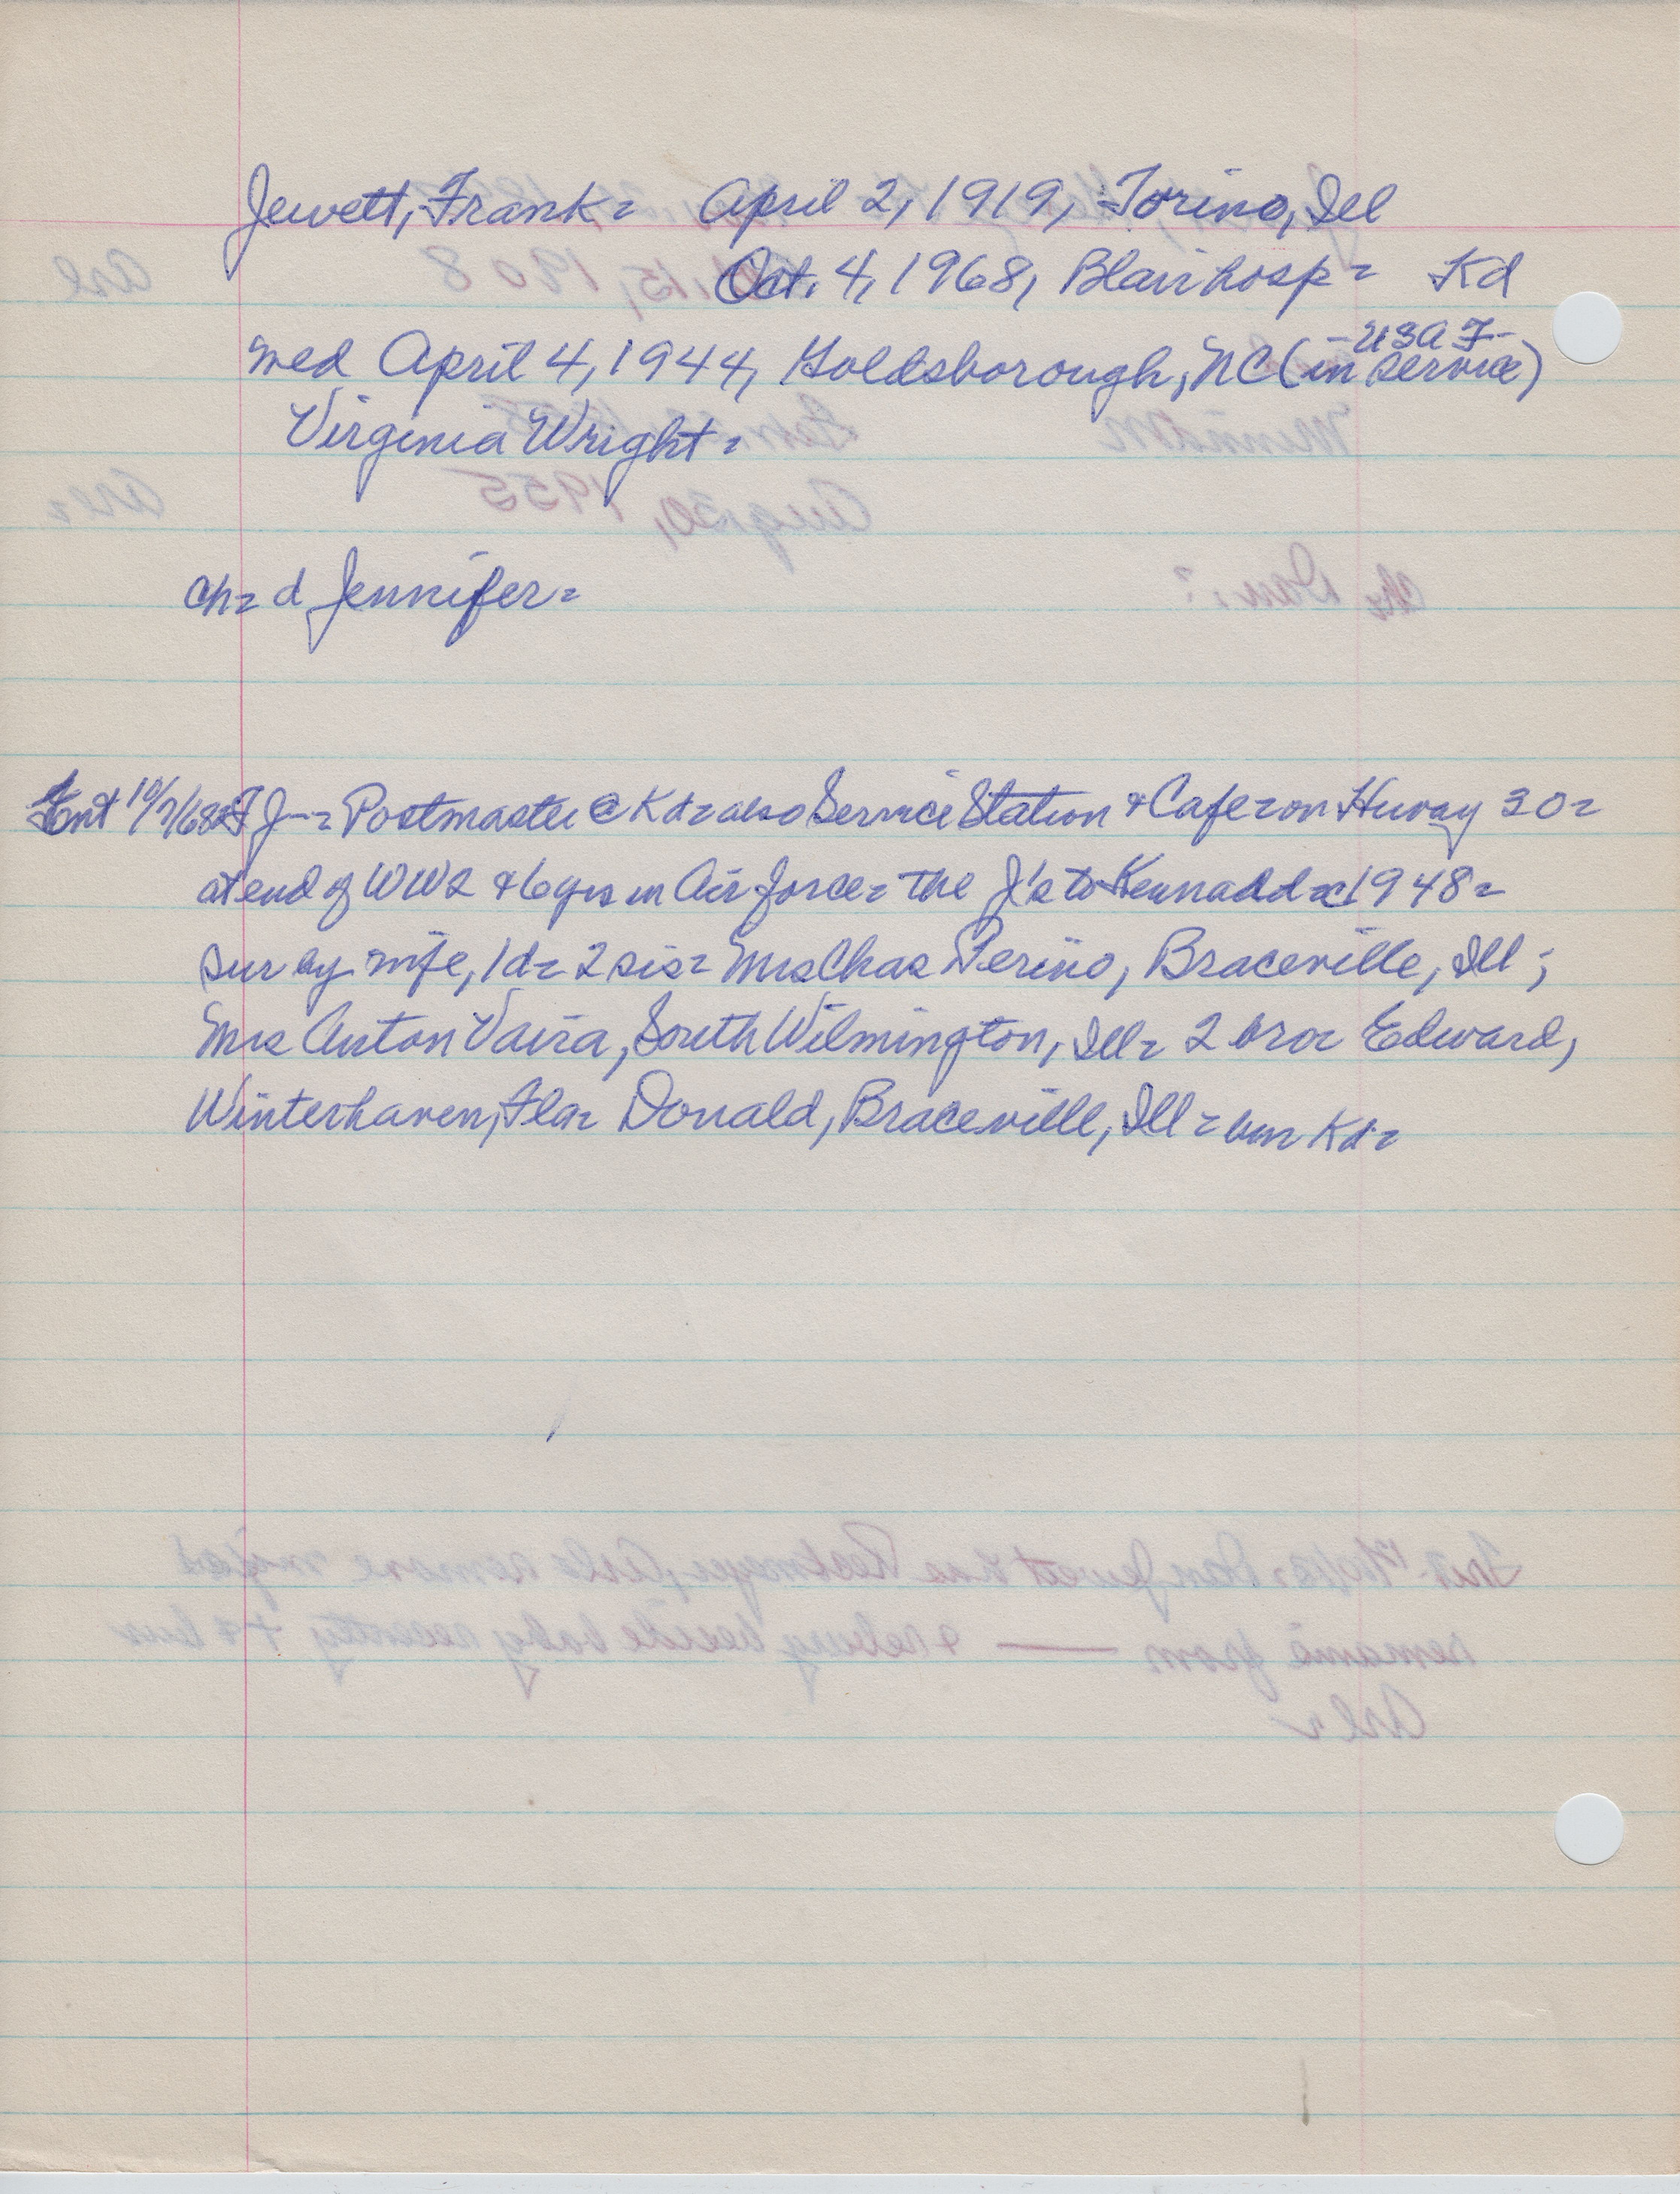 Jewett, Frank= April 2, 1919, Torino, Ill
Oct. 4, 1968, Blair hosp= Kd
-USAF-
med April 4, 1944, Goldsborough, NC (in service)
Virginia Wright=
ch= d Jennifer=
Ent 10/7/68= F J--= Postmaster @ Kd= also Service Station & Cafe= on Hiway 30=
at end of WW2 & 6 yrs in Air force= the J's to Kennard= c1948=
sur by wife, 1d= 2 sis= Mrs Chas Perino, Braceville, Ill;
Mrs Anton Vaira, South Wilmington, Ill= 2 bro= Edward,
Winterhaven, Fla= Donald, Braceville, Ill= bur Kd=